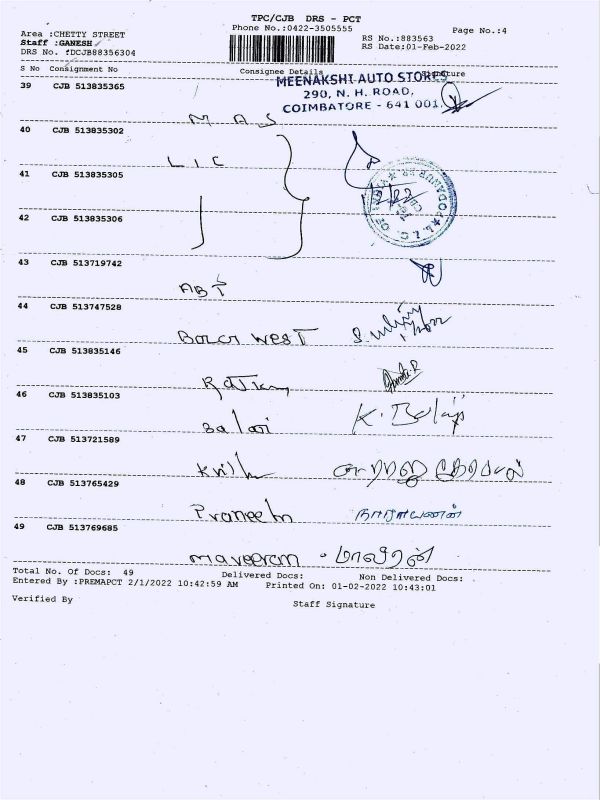 TPC/CJB DRS - PCT
Phone No.:0422-3505555
Page No.:4
Area :CHETTY STREET
Staff :GANESH
DRS No. :DCJB88356304
RS No.:883563
RS Date:01-Feb-2022
S No Consignment No Consignee Details Signature
39 CJB 513835365
MEENAKSHI AUTO STORES
290, N. H. ROAD,
COIMBATORE - 641 001.
M A S
40 CJB 513835302
L I C
41 CJB 513835305
42 CJB 513835306
43 CJB 513719742
ABT
44 CJB 513747528
West
45 CJB 513835146
46 CJB 513835103
Balaji K. Balaji
47 CJB 513721589
48 CJB 513765429
Praneeth நாராயணன்
49 CJB 513769685
maveeran
Total No. Of Docs: 49 Delivered Docs: Non Delivered Docs:
Entered By :PREMAPCT 2/1/2022 10:42:59 AM Printed On: 01-02-2022 10:43:01
Verified By Staff Signature